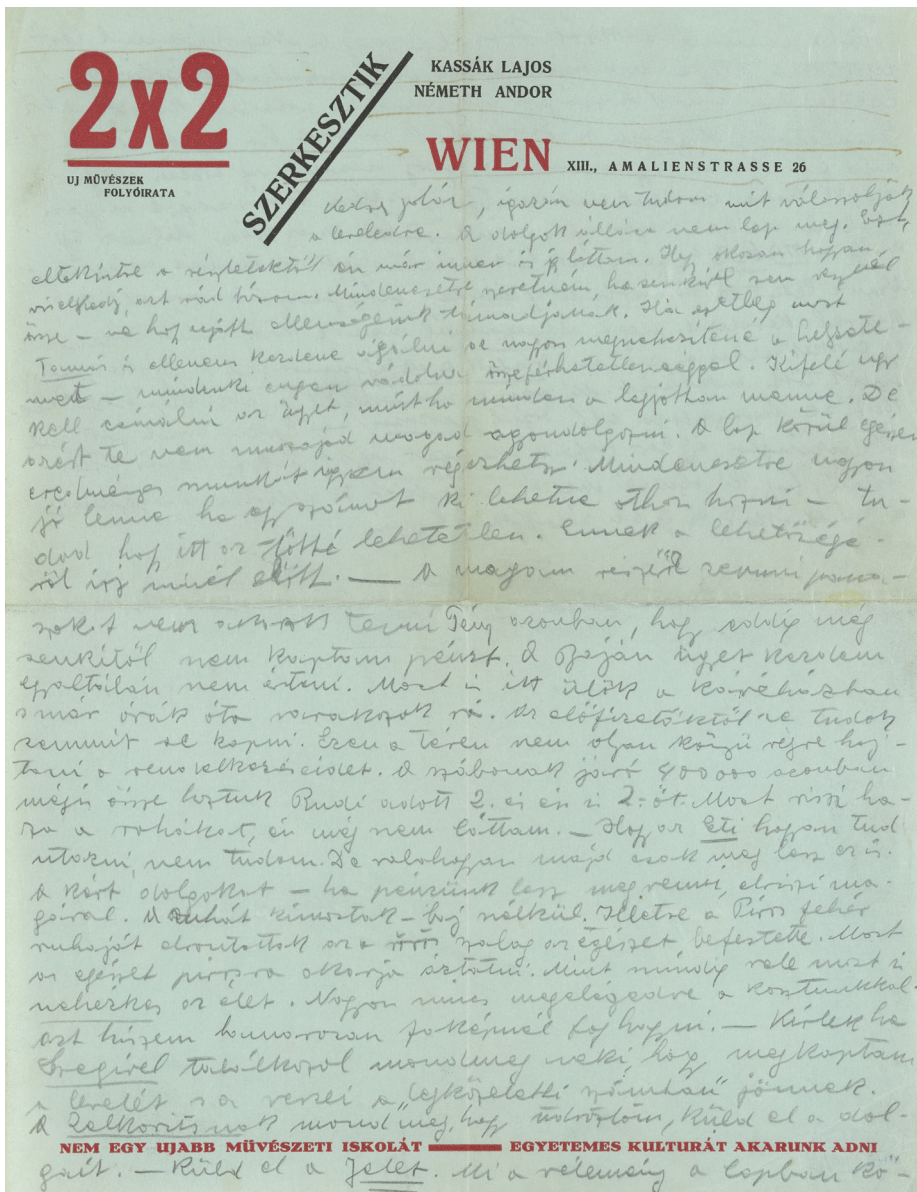 2x2
UJ MŰVÉSZEK
FOLYÓIRATA
SZERKESZTIK
KASSÁK LAJOS
NÉMETH ANDOR
WIEN XIII., AMALIENSTRASSE 26
igazán nem tudom mit válaszoljak
a leveledre. A dolgok állása nem lep meg. Ezt,
eltekintve a részletektől én már innen is láttam. Hogy okosan hogyan
viselkedj, azt rád bízom. Mindenesetre szeretném, ha senkivel sem vesznél
össze – ne hogy újból ellenségeink támadjanak. Ha esetleg most
Tamás is ellenem kezdene nagyon megnehezítené a helyzete-
met – mindenki engem vádolna összeférhetetlenséggel. Kifelé úgy
kell csinálni az ügyet, mintha minden a legjobban menne. De
azért te nem muszájod magad agyondolgozni. A lap körül egészen
eredményes munkát úgysem végezhetsz. Mindenesetre nagyon
jó lenne ha egy számot ki lehetne othon hozni – tu-
dod hogy itt az lehetetlen. Ennek a lehetőségé-
ről írj minél előbb. — A magam részéről semmi pana-
szokat nem akarok tenni Tény azonban, hogy eddig még
senkitől nem kaptam pénzt. A Baján ügyet kezdem
egyáltalán nem érteni. Most is itt ülök a kávéházban
s már órák óta várakozok rá. Az előfizetőktől se tudok
semmit se kapni. Ezen a téren nem olyan könnyű végre haj-
tani a rendelkezéseidet. A szabónak járó 400000 azonban
mégis össze hoztuk Rudi adott 2. őt és én is 2-őt. Most viszi ha-
za a ruhákat, én még nem láttam. – Hogy az Eti hogyan tud
utazni, nem tudom. De valahogyan majd csak meg lesz ez is.
A kért dolgokat – ha pénzünk lesz megvenni, elviszi ma-
gával. A ruhát kimosták – baj nélkül. Illetve a Piros fehér
ruháját elrontották az a vörös szalag az egészet befestette. Most
az egészet pirosra akarja áztatni. Mint mindig vele most is
nehézkes az élet. Nagyon nincs megelégedve a kosztunkkal
azt hiszem hamarosan faképnél fog hagyni. — Kérlek ha
találkozol mondmeg neki, hogy megkaptam
a levelét s a versei a „legközelebbi számban” jönnek.
A Zelkovitsnak mond meg, hogy üdvözlöm, küld el a dol-
NEM EGY UJABB MŰVÉSZETI ISKOLÁT — EGYETEMES KULTURÁT AKARUNK ADNI
gait. – Küld el a Jelet. Mi a vélemény a lapban kö-